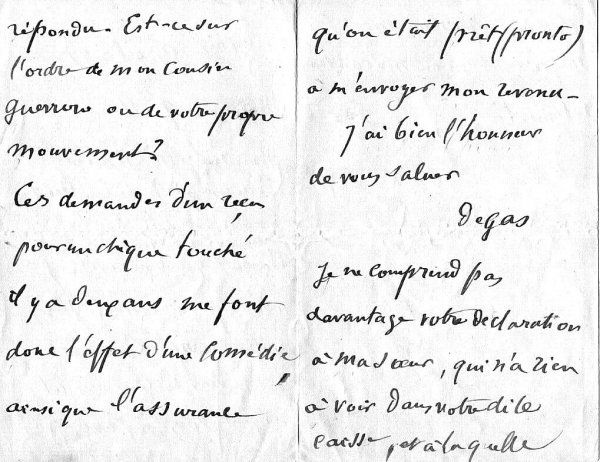 répondu. Est-ce sur
l'ordre de mon Cousin
guerrero ou de votre propre
mouvement?
Ces demandes d'un reçu
pour un chèque touché
il y a deux ans me font
donc l'effet d'une Comédie,
ainsi que l'assurance
qu'on était prêt (pronto)
à m'envoyer mon revenu -
J'ai bien l'honneur
de vous saluer
Degas
Je ne comprend pas
davantage votre déclaration
à ma soeur, qui n'a rien
à voir dans votre dite
caisse, et à laquelle